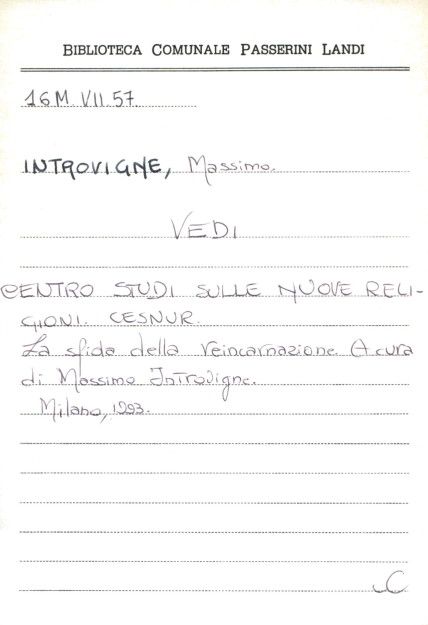 BIBLIOTECA COMUNALE PASSERINI LANDI
16 M. VII. 57.
INTROVIGNE, Massimo.
VEDI
CENTRO STUDI SULLE NUOVE RELI-
GIONI. CESNUR.
La sfida della reincarnazione. A cura
di Massimo Introvigne.
Milano, 1993.
C